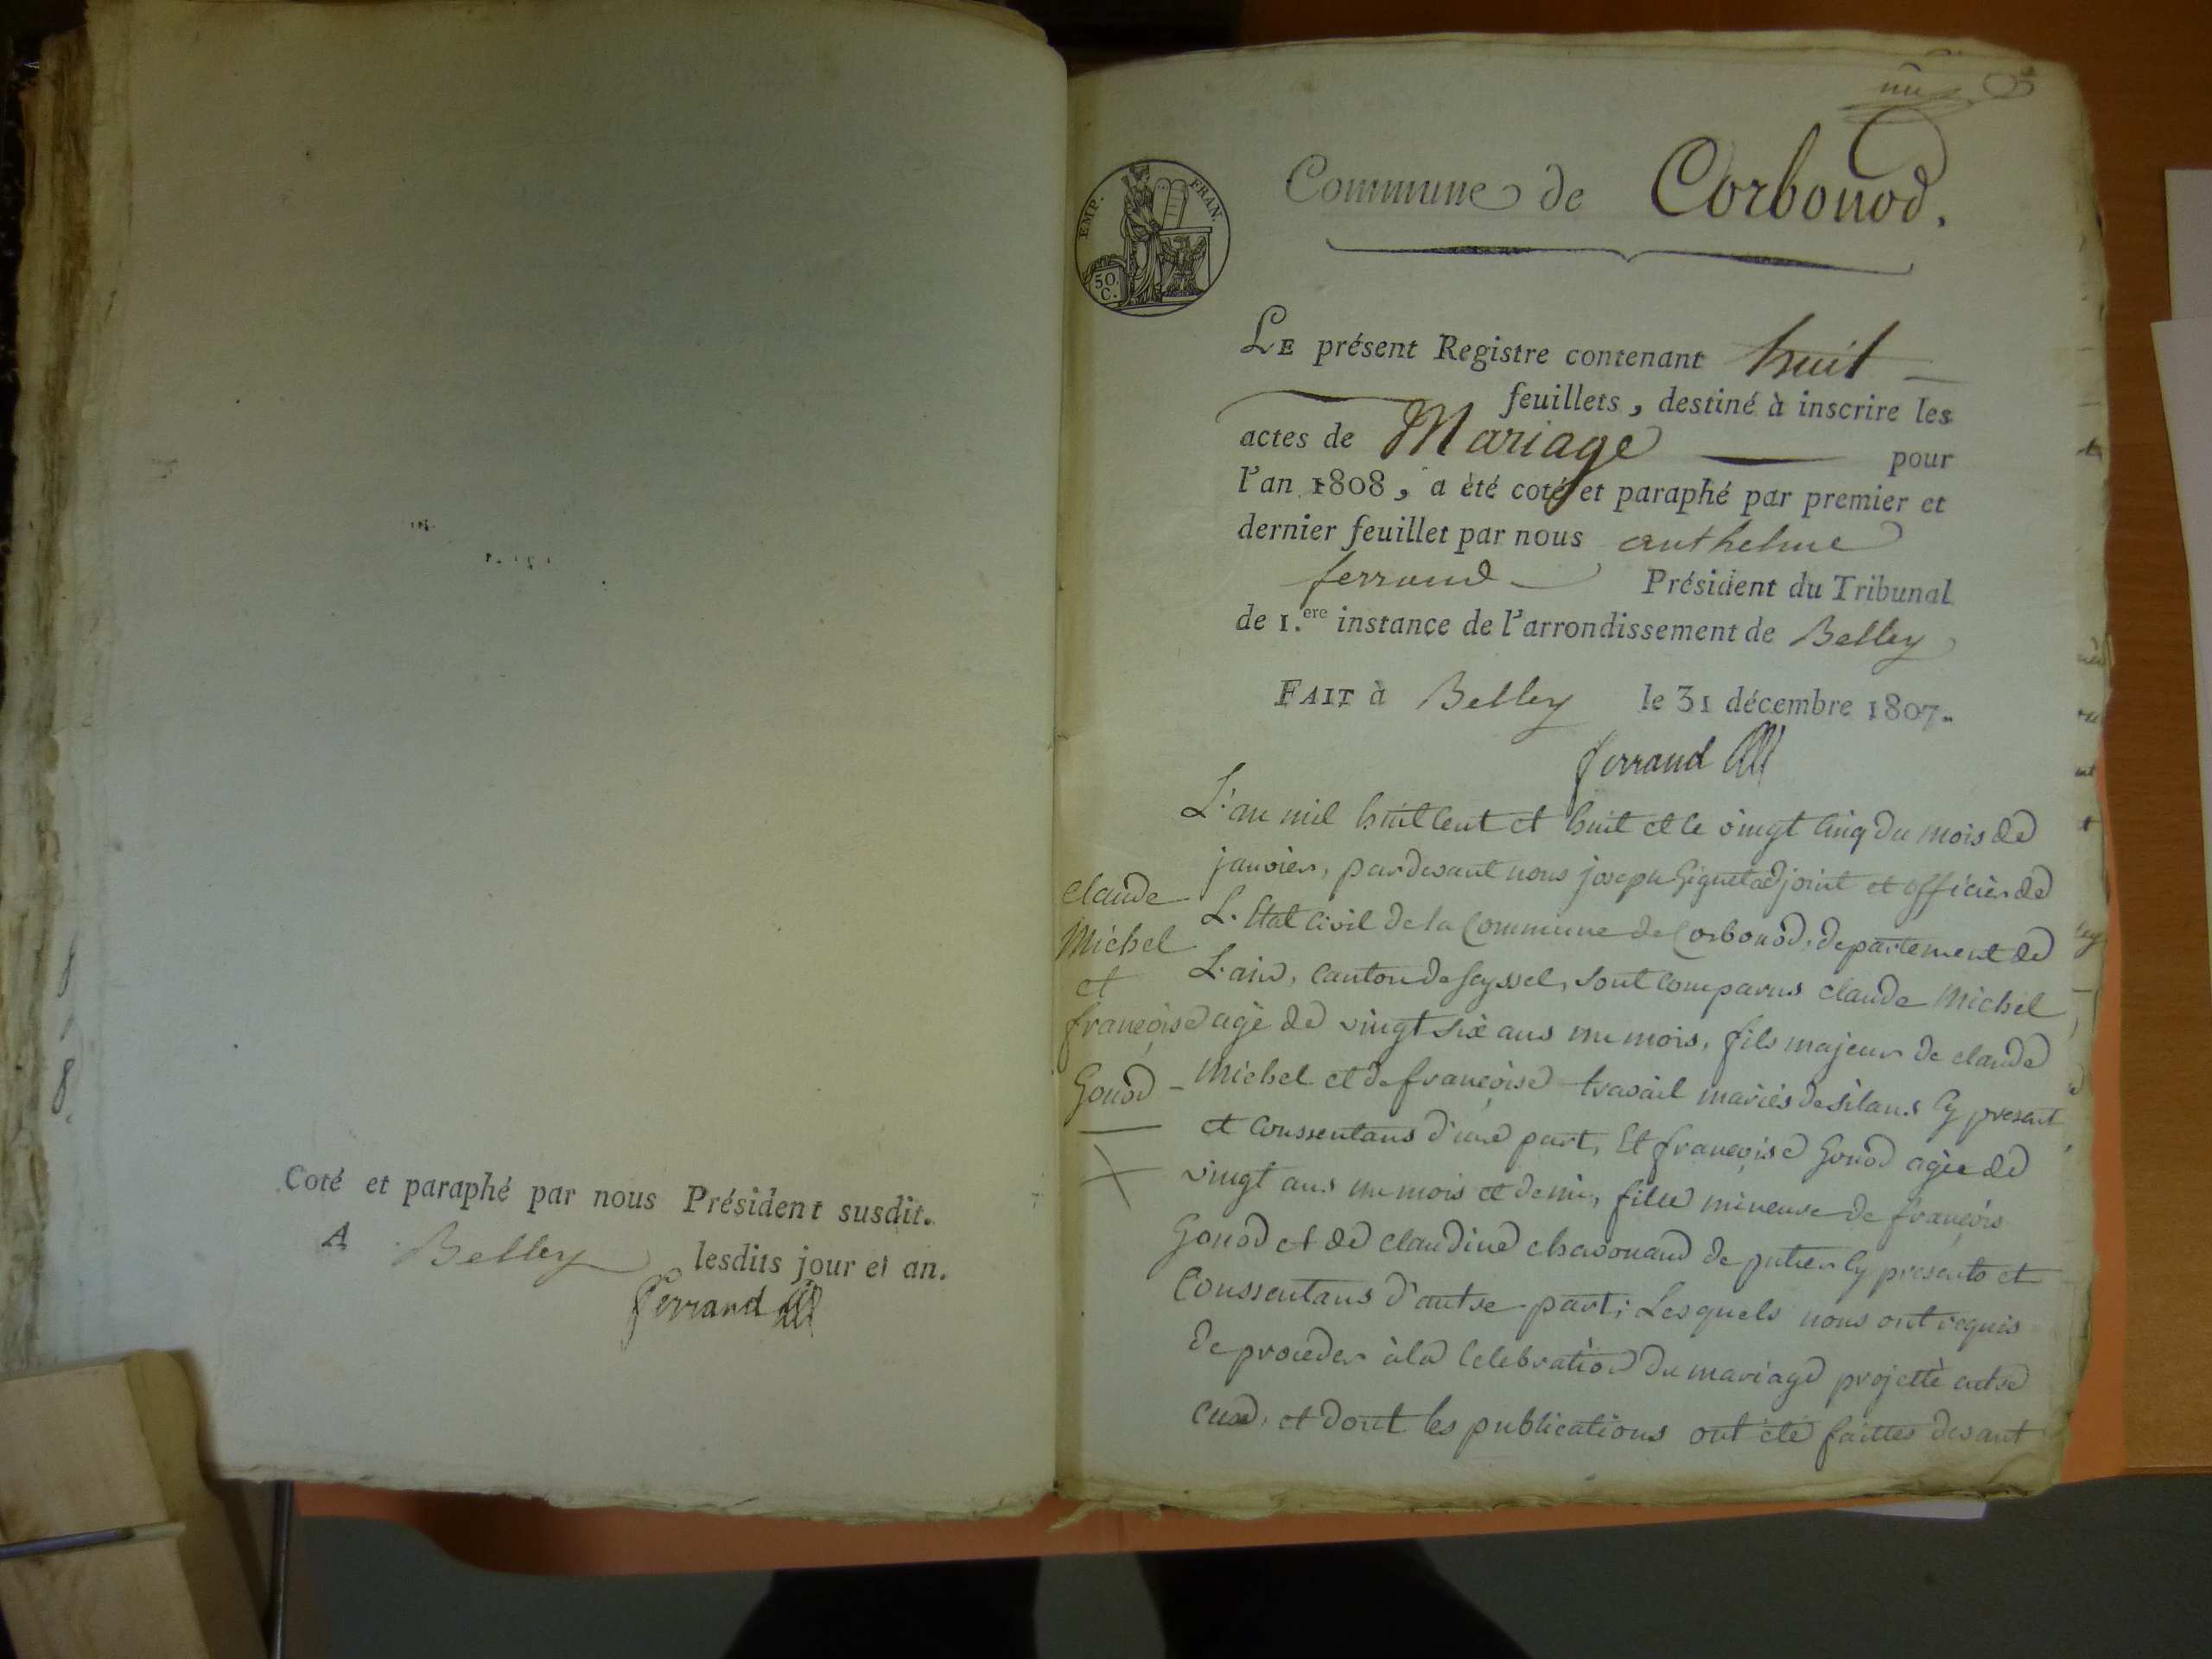 Coté et paraphé par nous Président susdit.
A Belley lesdits jour et an.
Ferrand
Commune de Corbonod.
EMP. FRAN.
50 C.
LE présent Registre contenant huit
feuillets, destiné à inscrire les
actes de Mariage pour
l'an 1808, a été coté et paraphé par premier et
dernier feuillet par nous anthelme
ferrand Président du Tribunal
de 1.ere instance de l'arrondissement de Belley
FAIT à Belley le 31 décembre 1807.
ferrand
L'an mil huit cent et huit et le vingt cinq du mois de
janvier, pardevant nous joseph Giguet adjoint et officier de
L'Etat Civil de la Commune de Corbonod, departement de
L'ain, canton de seyssel, sont comparus claude Michel
agé de vingt six ans un mois, fils majeur de claude
Michel et de françoise travail mariés de silans cy present
et conssentans d'une part, Et françoise Gonod agée de
vingt ans un mois et demi, fille mineure de françois
Gonod et de claudine chavonand de cy presents et
Conssentans d'autre part; Lesquels nous ont requis
de proceder à la Celebration du mariage projetté entre
eux, et dont les publications ont été faittes devant
claude
Michel
et
françoise
Gonod